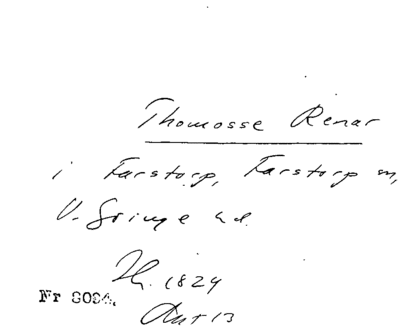 Thomosse Renar
i Farstorp, Farstorp sn,
V. Göinge hd.
Th. 1824
Nr 8094.
Aut 13